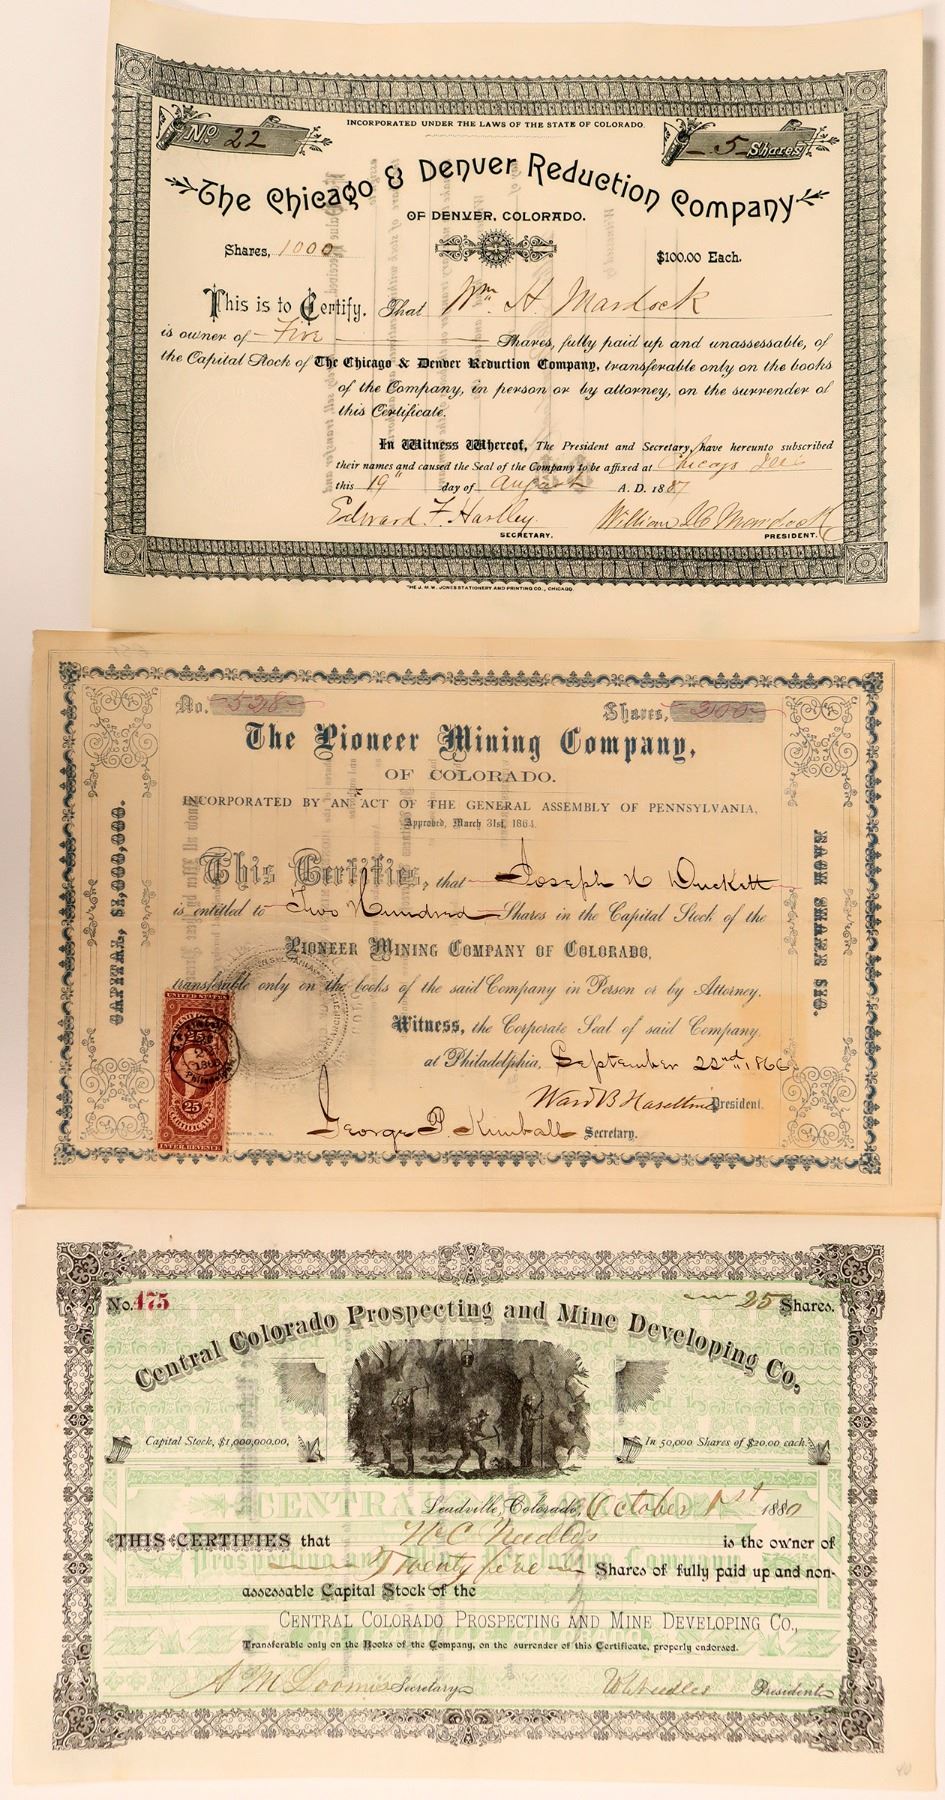 INCORPORATED UNDER THE LAWS OF THE STATE OF COLORADO.
No. 22
5 Shares
The Chicago & Denver Reduction Company
OF DENVER, COLORADO.
Shares, 1000
$100.00 Each.
This is to Certify, That Wm. H. Mardock
is owner of Five Shares, fully paid up and unassessable, of
the Capital Stock of The Chicago & Denver Reduction Company, transferable only on the books
of the Company, in person or by attorney, on the surrender of
this Certificate.
In Witness Whereof, The President and Secretary, have hereunto subscribed
their names and caused the Seal of the Company to be affixed at Chicago
this 19th day of August A. D. 1887
Edward F. Hartley
William Mardock
SECRETARY.
PRESIDENT.
THE J. M. W. JONES STATIONERY AND PRINTING CO., CHICAGO.
No. 528
Shares, 200
The Pioneer Mining Company,
OF COLORADO.
INCORPORATED BY AN ACT OF THE GENERAL ASSEMBLY OF PENNSYLVANIA,
Approved, March 31st, 1864.
CAPITAL, $1,000,000.
EACH SHARE $10.
This Certifies, that Joseph N Duckett
is entitled to Two Hundred Shares in the Capital Stock of the
PIONEER MINING COMPANY OF COLORADO,
transferable only on the books of the said Company in Person or by Attorney.
Witness, the Corporate Seal of said Company.
at Philadelphia, September 22nd 1866
Ward B Haseltine President.
George P. Kimball Secretary.
UNITED STATES
25
CERTIFICATE
INTER. REVENUE
No. 175
25 Shares.
Central Colorado Prospecting and Mine Developing Co,
Capital Stock, $1,000,000.00,
In 50,000 Shares of $20.00 each.
CENTRAL COLORADO
Leadville, Colorado, October 1st 1880
THIS CERTIFIES that W C Needles is the owner of
Prospecting and Mine Developing Company
Twenty five Shares of fully paid up and non-
assessable Capital Stock of the
CENTRAL COLORADO PROSPECTING AND MINE DEVELOPING CO.,
Transferable only on the Books of the Company, on the surrender of this Certificate, properly endorsed.
A M Loomis Secretary
W C Needles President
40